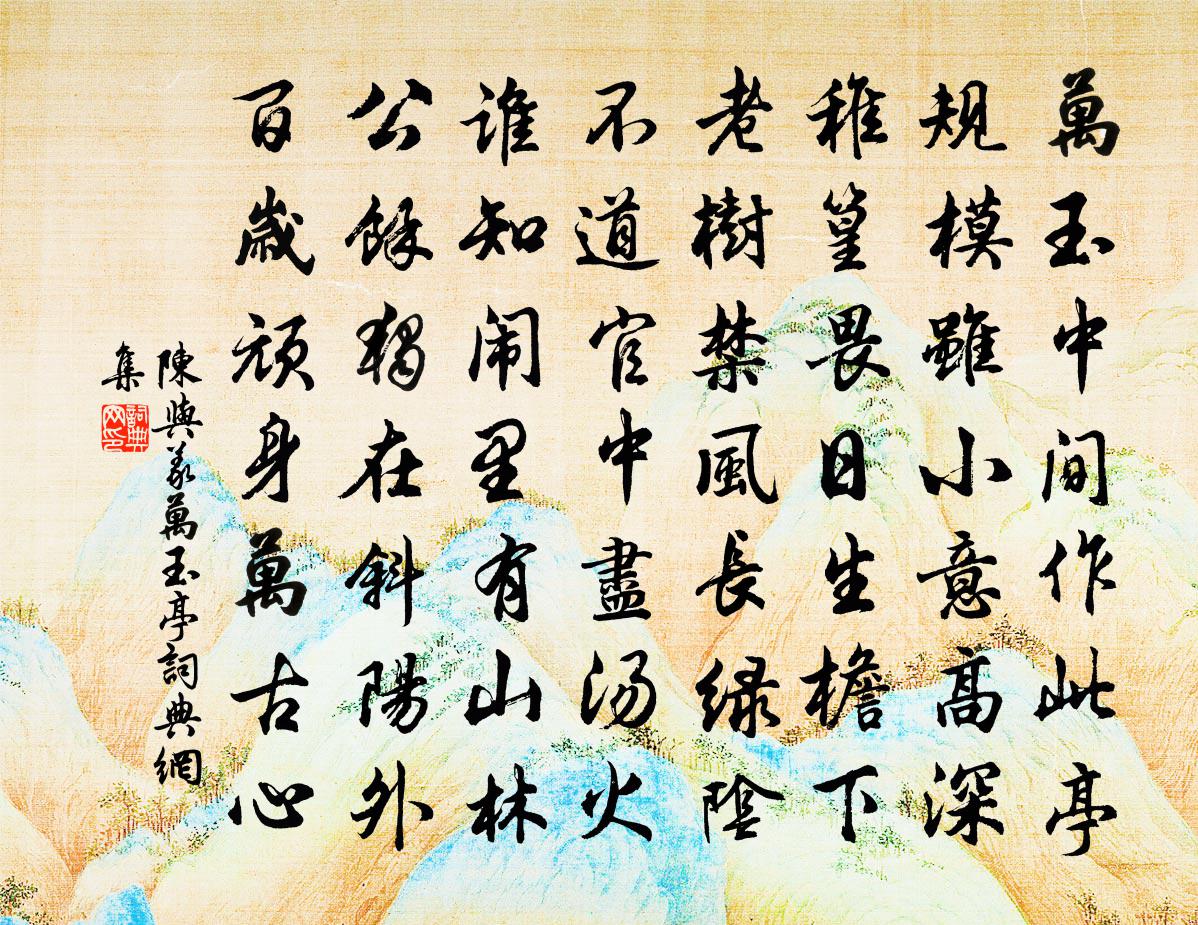 萬玉中间作此亭
規模雖小意高深
稚篁畏日生檐下
老樹禁風長绿陰
不道官中盡湯火
谁知闹里有山林
公餘獨在斜陽外
百歲顽身萬古心
陳與義萬玉亭詞典網
集
詞典网印